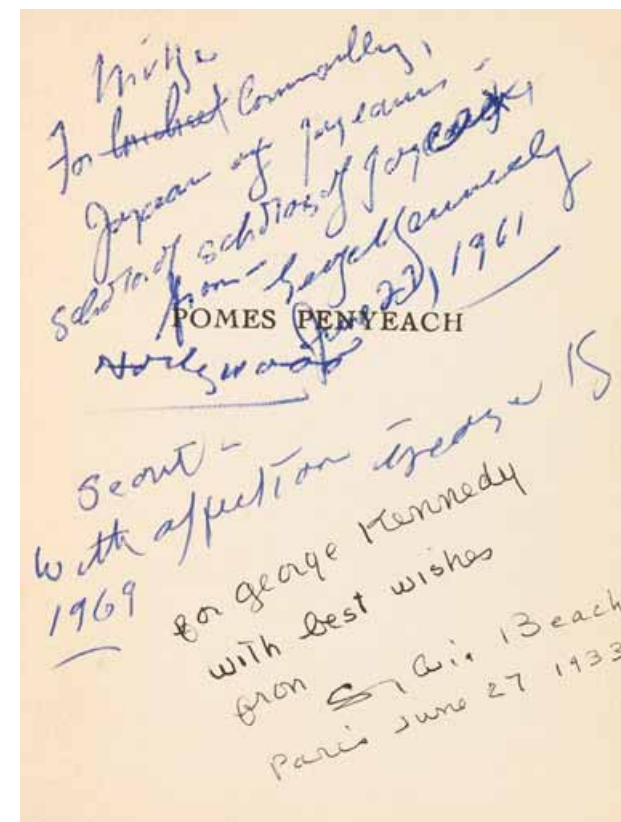 For Connolly,
Joycean of Joyceans -
scholar of scholars of
from - George Kennedy
June 27, 1961
POMES PENYEACH
Hollywood
Scout -
With affection George K
1969
for George Kennedy
with best wishes
from Sylvia Beach
Paris June 27 1933